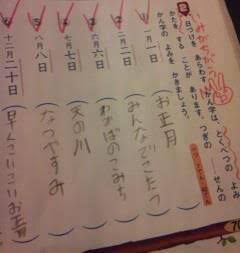 いみがちがう
日づけを あらわす かん字は、とくべつの よみ
かたを する ことが あります。つぎの ――せんの
かん字の よみを かきましょう。
一月一日(お正月)
二月二日(みんなでこたつ)
六月六日(わかばのこみち)
七月七日(天の川)
八月八日(なつやすみ)
十二月二十日(早くこいこいお正月)